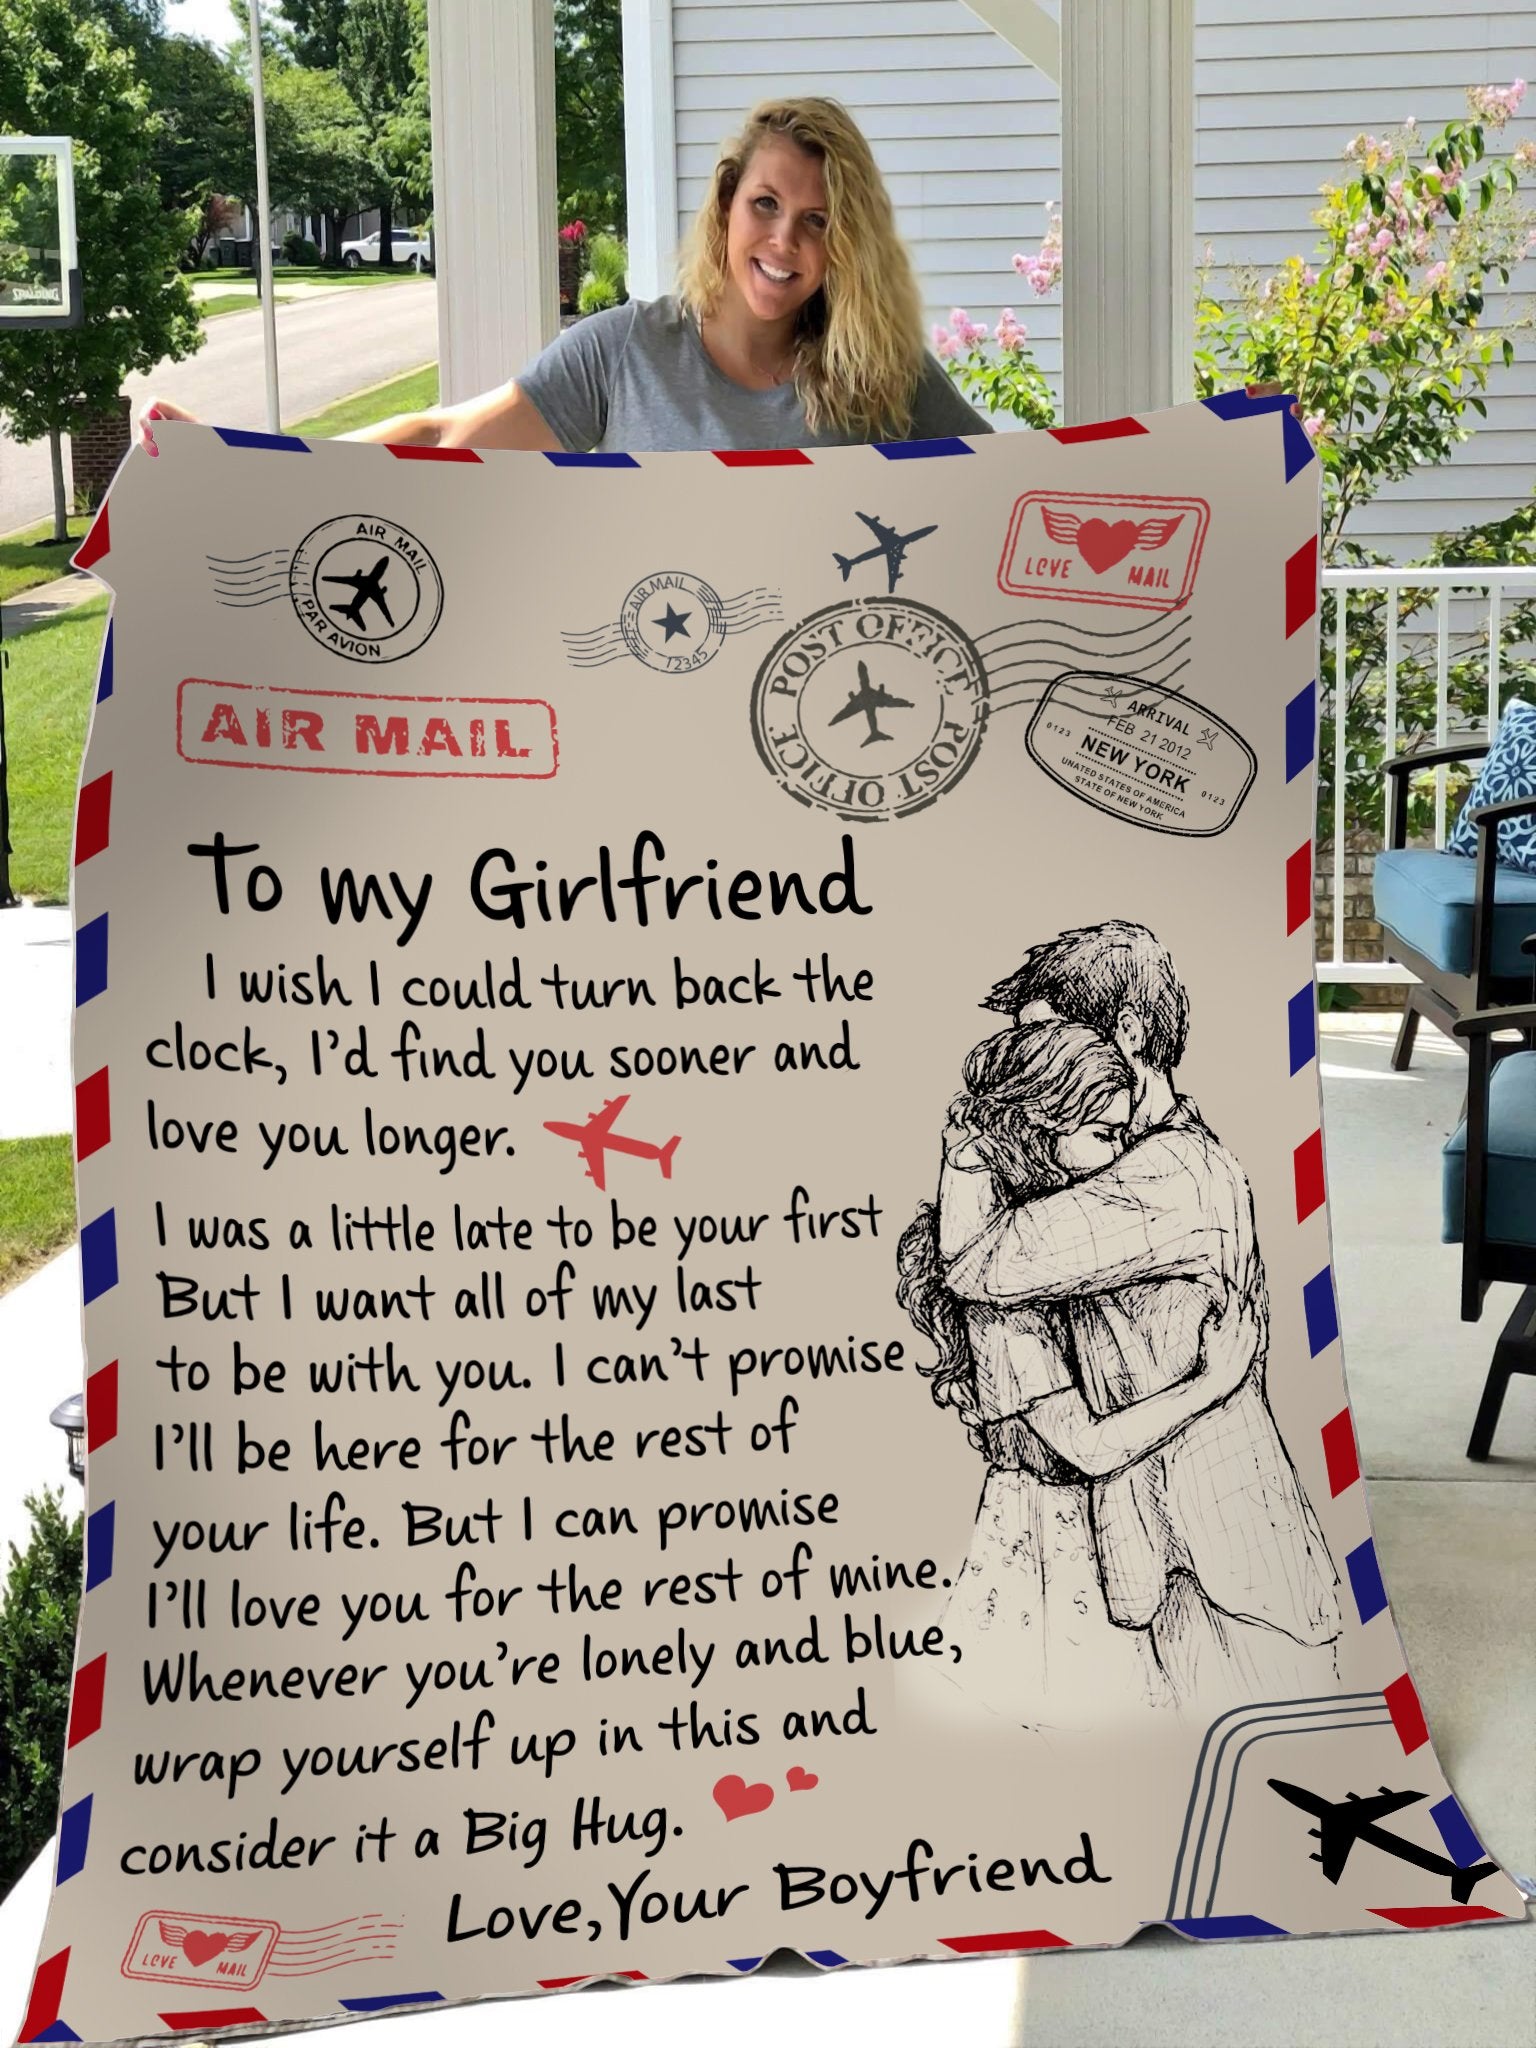 AIR MAIL
PAR AVION
AIR MAIL
12345
LOVE MAIL
POST OFFICE
POST OFFICE
AIR MAIL
ARRIVAL
FEB 21 2012
0123 NEW YORK 0123
UNATED STATES OF AMERICA
STATE OF NEW YORK
To my Girlfriend
I wish I could turn back the
clock, I'd find you sooner and
love you longer.
I was a little late to be your first
But I want all of my last
to be with you. I can't promise
I'll be here for the rest of
your life. But I can promise
I'll love you for the rest of mine.
Whenever you're lonely and blue,
wrap yourself up in this and
consider it a Big Hug.
Love, Your Boyfriend
LOVE MAIL